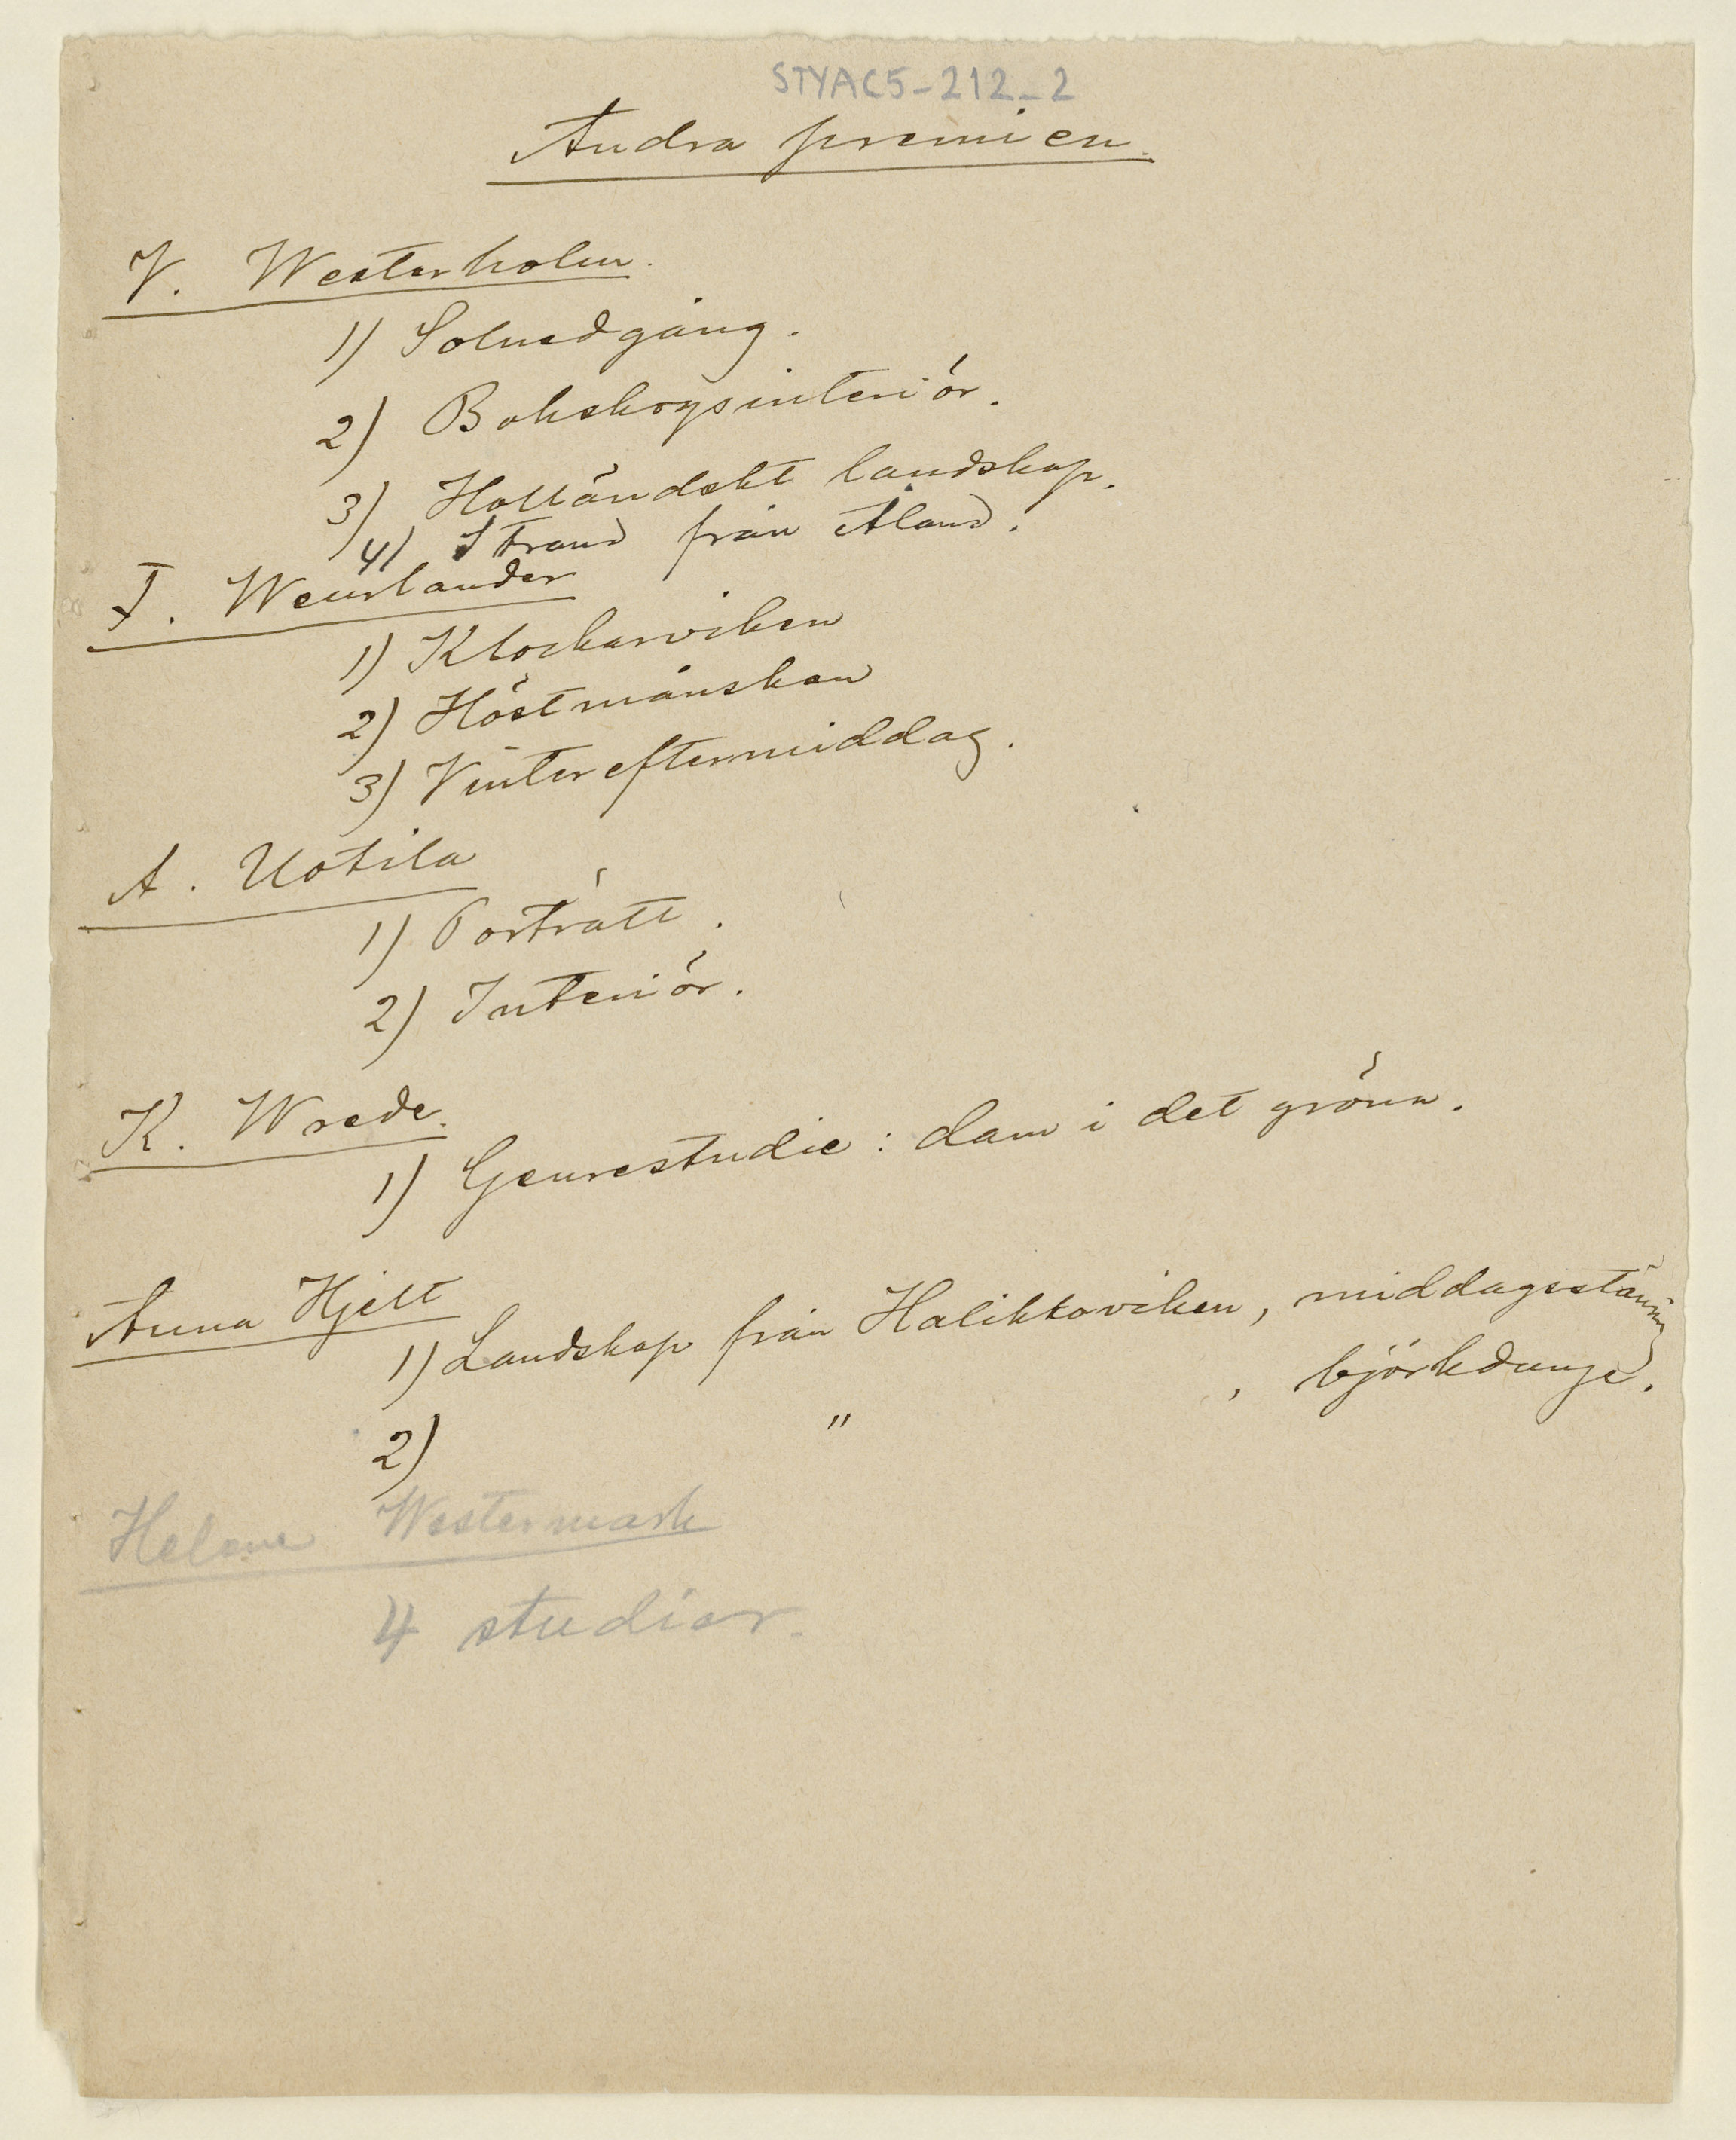 STYAC5-212_2
Andra premien.
V. Westerholm.
1) Solnedgång.
2) Bokskogsinteriör.
3) Holländskt landskap.
4) Strand från Åland.
T. Waenerlander
1) Klockarviken
2) Höstmånsken
3) Vintereftermiddag.
A. Uotila
1) Porträtt.
2) Interiör.
K. Wrede.
1) Genrestudie: dam i det gröna.
Anna Hjelt
1) Landskap från Halikkoviken, middagsstämning
2) " , björkdunge.
Helena Westermark
4 studier.